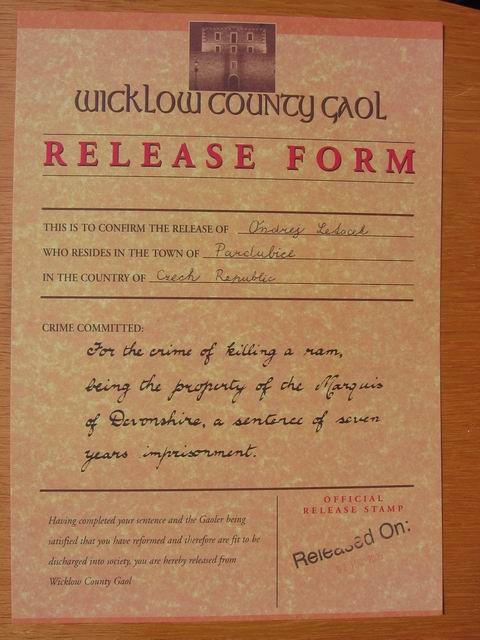 WICKLOW COUNTY GAOL
RELEASE FORM
THIS IS TO CONFIRM THE RELEASE OF Ondrej
WHO RESIDES IN THE TOWN OF Pardubice
IN THE COUNTRY OF Czech Republic
CRIME COMMITTED:
For the crime of killing a ram,
being the property of the Marquis
of Devonshire, a sentence of seven
years imprisonment.
Having completed your sentence and the Gaoler being
satisfied that you have reformed and therefore are fit to be
discharged into society, you are hereby released from
Wicklow County Gaol
OFFICIAL
RELEASE STAMP
Released On: